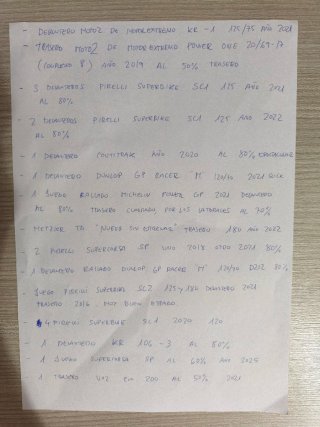 - DELANTERO MOTO2 DE MOTOREXTREMO KR-1 125/75 AÑO 2021
- TRASERO MOTO2 DE MOTOREXTREMO POWER ONE 20/69-17
(COMPUESTO B) AÑO 2019 AL 50% TRASERO
- 3 DELANTEROS PIRELLI SUPERBIKE SC1 125 AÑO 2021
AL 80%
- 2 DELANTEROS PIRELLI SUPERBIKE SC1 125 AÑO 2022
AL 80%
- 1 DELANTERO AÑO 2020 AL 80%
- 1 DELANTERO DUNLOP GP RACER "M" 120/70 2021
- 1 JUEGO RALLADO MICHELIN POWER GP 2021 DELANTERO
AL 80% TRASERO POR LOS LATERALES AL 70%
- METZLER TD "NUEVO SIN ESTRENAR" TRASERO 180 AÑO 2022
- 2 PIRELLI SUPERCORSA SP UNO 2018 OTRO 2021 80%
- 1 DELANTERO RALLADO DUNLOP GP RACER "M" 120/70 80%
- JUEGO PIRELLI SUPERBIKE SC2 125 y 180 DELANTERO 2021
TRASERO 2016 MUY BUEN ESTADO.
- 4 PIRELLI SUPERBIKE SC1 2020 120
- 1 DELANTERO KR 106-3 AL 80%
- 1 JUEGO SUPERCORSA SP AL 60% AÑO
- 1 TRASERO 200 AL 50% 2021